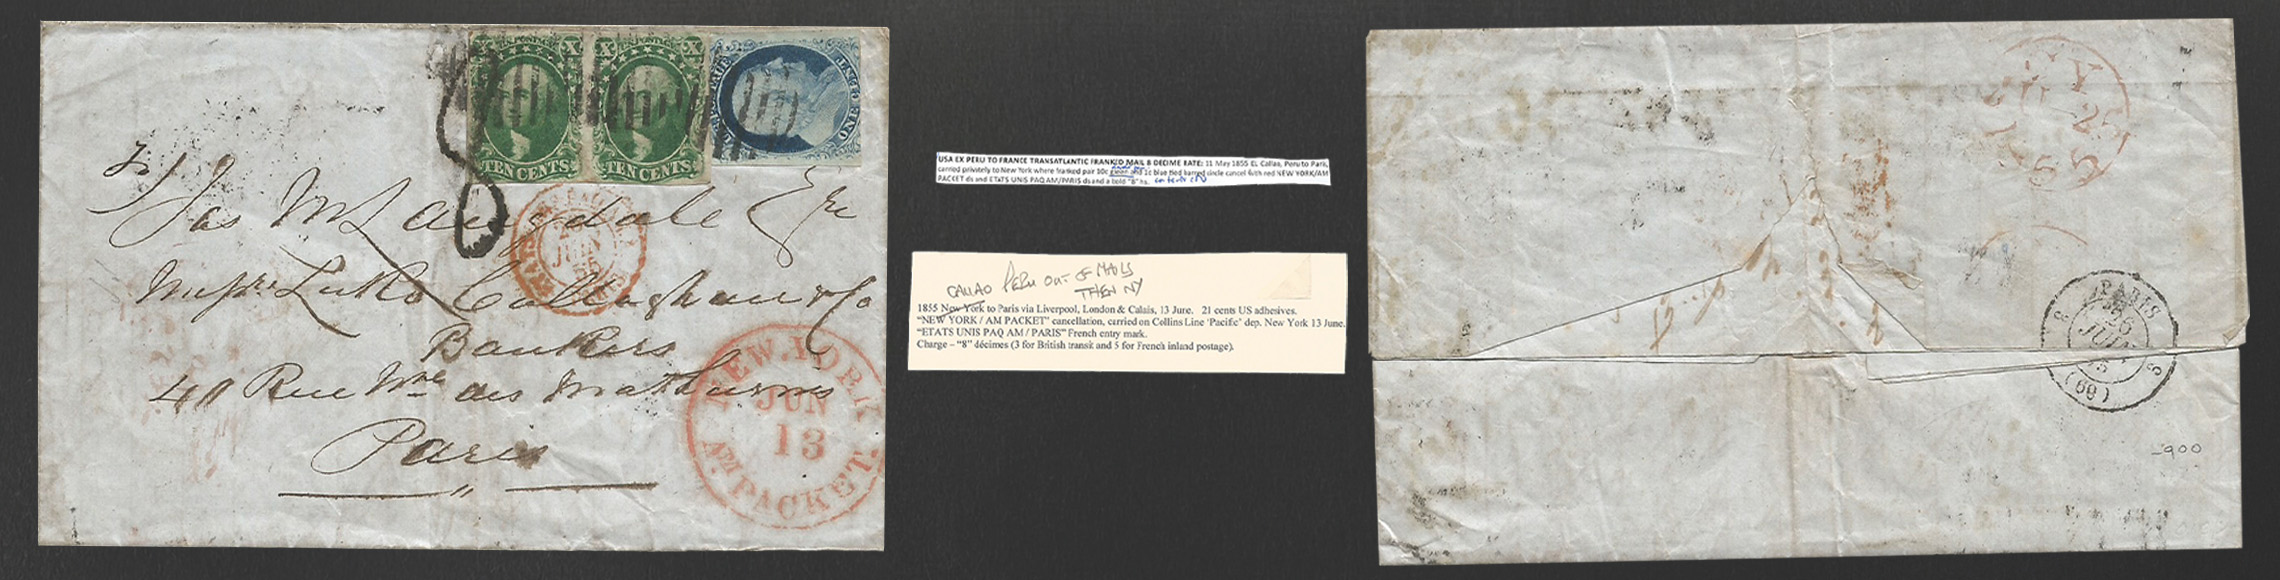 X U.S. POSTAGE X
TEN CENTS.
X U.S. POSTAGE X
TEN CENTS.
POSTAGE
ONE CENT
Jas McLangsdale Esqre
Luke Callaghan & Co
Bankers
40 Rue Nve des Mathurins
Paris
8
ETATS UNIS PAQ. AM.
26
JUIN
55
PARIS
NEW.YORK
JUN
13
AM.PACKET.
USA EX PERU TO FRANCE TRANSATLANTIC FRANKED MAIL 8 DECIME RATE: 11 May 1855 EL Callao, Peru to Paris,
carried privately to New York where franked pair 10c green and 1c blue tied barred circle cancel with red NEW YORK/AM
PACKET ds and ETATS UNIS PAQ AM/PARIS ds and a bold "8" hs.
CALLAO PERU OUT OF MAILS
THEN NY
1855 New York to Paris via Liverpool, London & Calais, 13 June. 21 cents US adhesives.
"NEW YORK / AM PACKET" cancellation, carried on Collins Line 'Pacific' dep. New York 13 June.
"ETATS UNIS PAQ AM / PARIS" French entry mark.
Charge – "8" décimes (3 for British transit and 5 for French inland postage).
PARIS
26
JUIN
55
(60)
-900